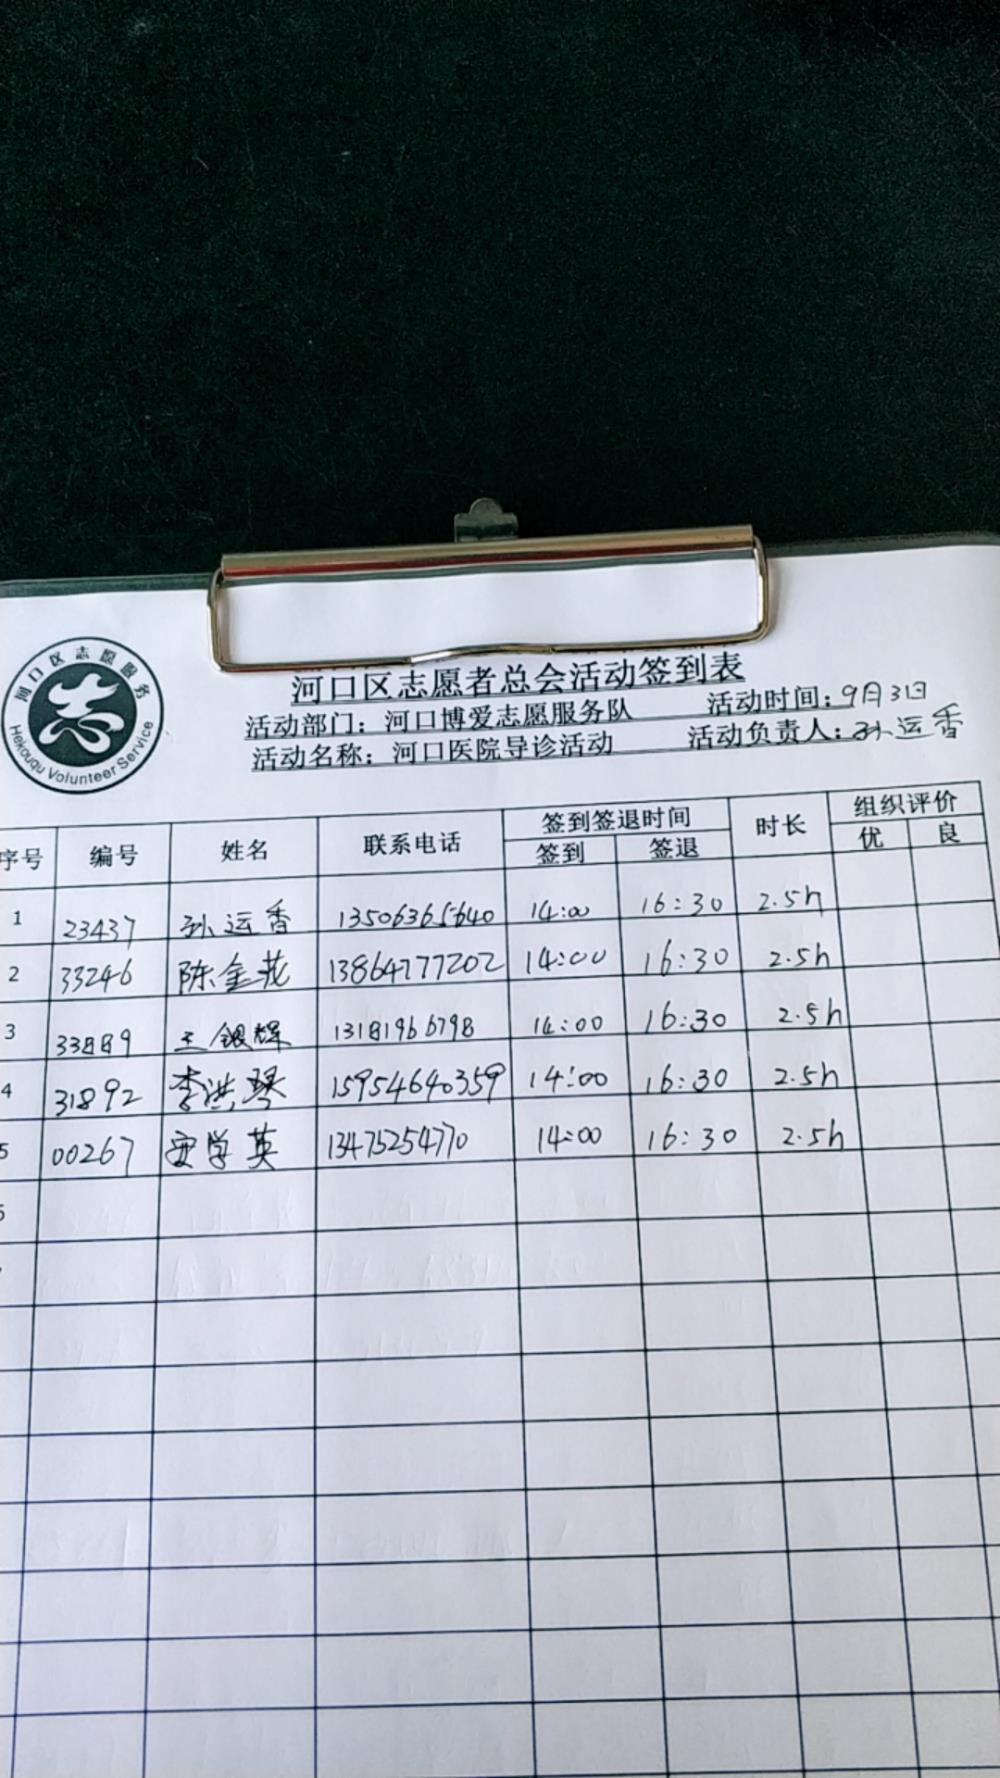 河口区志愿服务
Hekouqu Volunteer Service
河口区志愿者总会活动签到表
活动部门：河口博爱志愿服务队 活动时间：9月3日
活动名称：河口医院导诊活动 活动负责人：孙运香
序号 编号 姓名 联系电话 签到签退时间 时长 组织评价
签到 签退 优 良
1 23437 孙运香 13506365640 14:00 16:30 2.5h
2 33246 陈金花 13864777202 14:00 16:30 2.5h
3 33889 王银辉 13181966798 14:00 16:30 2.5h
4 31892 李洪琴 15954640359 14:00 16:30 2.5h
5 00267 安学英 13475254770 14:00 16:30 2.5h
6